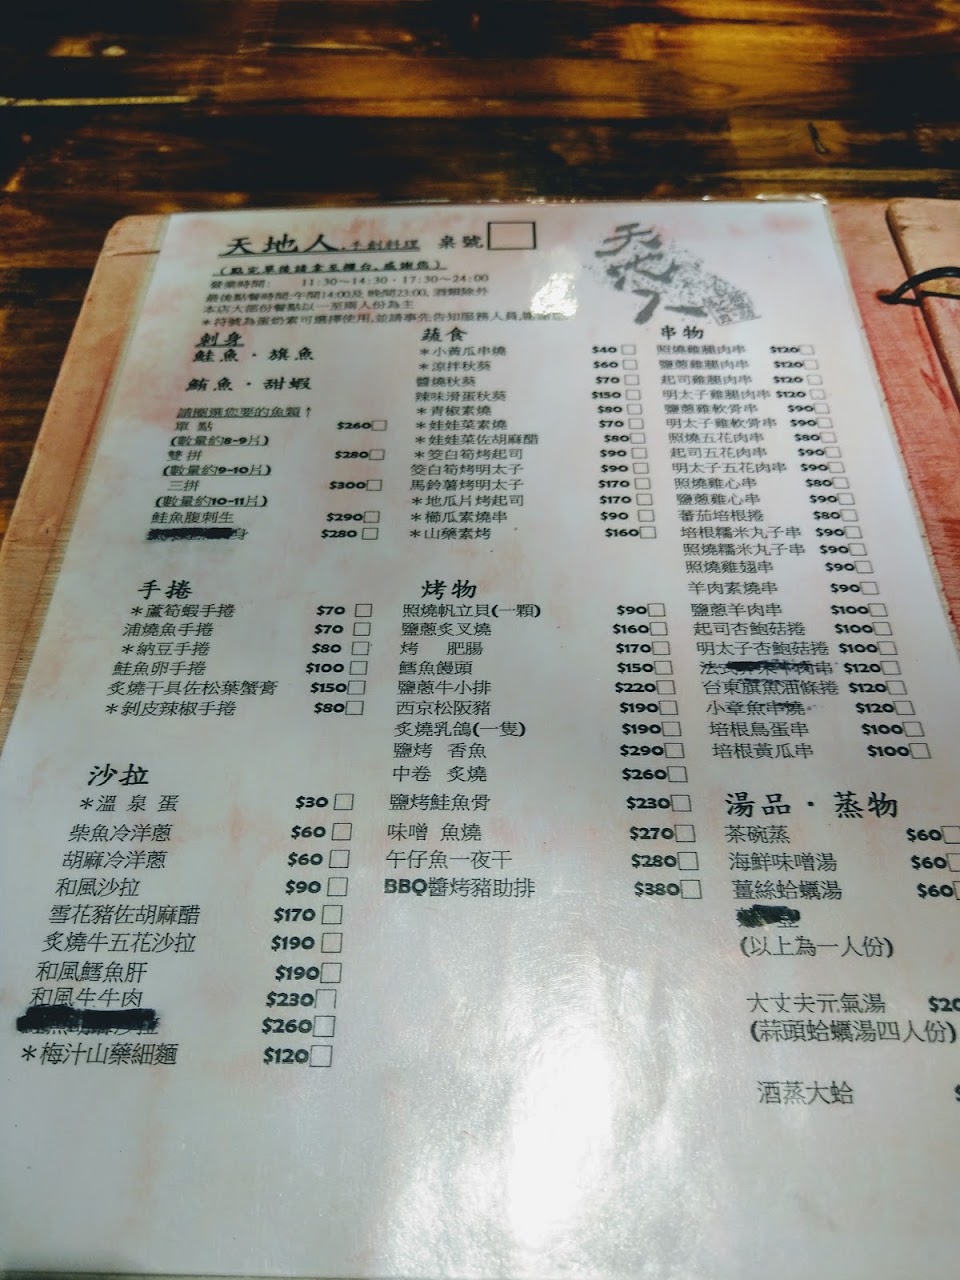 天地人.手創料理 桌號
(點完單後請拿至櫃台,感謝您)
營業時間: 11:30~14:30 · 17:30~24:00
最後點餐時間:午間14:00及 晚間23:00, 酒類除外
本店大部份餐點以一至兩人份為主
*符號為蛋奶素可選擇使用,並請事先告知服務人員,
天地人
刺身
鮭魚 · 旗魚
鮪魚 · 甜蝦
請圈選您要的魚類↑
單 點 $260
(數量約8-9片)
雙 拼 $280
(數量約9-10片)
三拼 $300
(數量約10-11片)
鮭魚腹刺生 $290
身 $280
手捲
*蘆筍蝦手捲 $70
浦燒魚手捲 $70
*納豆手捲 $80
鮭魚卵手捲 $100
炙燒干貝佐松葉蟹膏 $150
*剝皮辣椒手捲 $80
沙拉
*溫 泉 蛋 $30
柴魚冷洋蔥 $60
胡麻冷洋蔥 $60
和風沙拉 $90
雪花豬佐胡麻醋 $170
炙燒牛五花沙拉 $190
和風鱈魚肝 $190
和風牛牛肉 $230
$260
*梅汁山藥細麵 $120
蔬食
*小黃瓜串燒 $40
*涼拌秋葵 $60
醬燒秋葵 $70
辣味滑蛋秋葵 $150
*青椒素燒 $80
*娃娃菜素燒 $70
*娃娃菜佐胡麻醋 $80
*筊白筍烤起司 $90
筊白筍烤明太子 $90
馬鈴薯烤明太子 $170
*地瓜片烤起司 $170
*櫛瓜素燒串 $90
*山藥素烤 $160
烤物
照燒帆立貝(一顆) $90
鹽蔥炙叉燒 $160
烤 肥腸 $170
鱈魚饅頭 $150
鹽蔥牛小排 $220
西京松阪豬 $190
炙燒乳鴿(一隻) $190
鹽烤 香魚 $290
中卷 炙燒 $260
鹽烤鮭魚骨 $230
味噌 魚燒 $270
午仔魚一夜干 $280
BBQ醬烤豬肋排 $380
串物
照燒雞腿肉串 $120
鹽蔥雞腿肉串 $120
起司雞腿肉串 $120
明太子雞腿肉串 $120
鹽蔥雞軟骨串 $90
明太子雞軟骨串 $90
照燒五花肉串 $80
起司五花肉串 $90
明太子五花肉串 $90
照燒雞心串 $80
鹽蔥雞心串 $90
蕃茄培根捲 $80
培根糯米丸子串 $90
照燒糯米丸子串 $90
照燒雞翅串 $90
羊肉素燒串 $90
鹽蔥羊肉串 $100
起司杏鮑菇捲 $100
明太子杏鮑菇捲 $100
法式 牛肉串 $120
台東旗魚油條捲 $120
小章魚串燒 $120
培根鳥蛋串 $100
培根黃瓜串 $100
湯品 · 蒸物
茶碗蒸 $60
海鮮味噌湯 $60
薑絲蛤蠣湯 $60
(以上為一人份)
大丈夫元氣湯 $20
(蒜頭蛤蠣湯四人份)
酒蒸大蛤 $